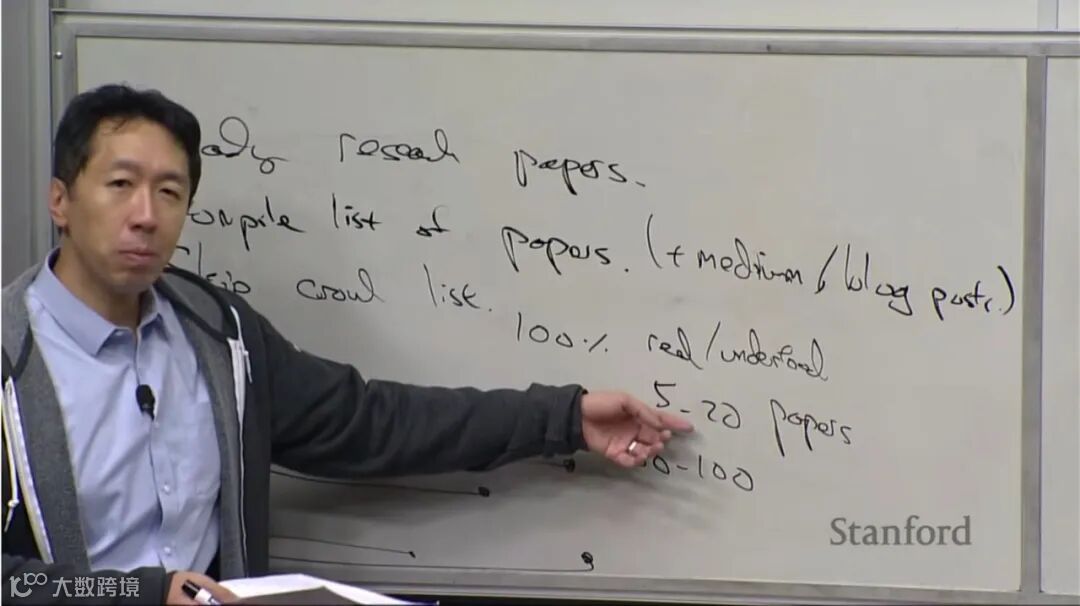 research papers.
list of papers. (+ medium/blog posts.)
Skip around list.
100% read/understood
5-20 papers
0-100
Stanford
大数跨境